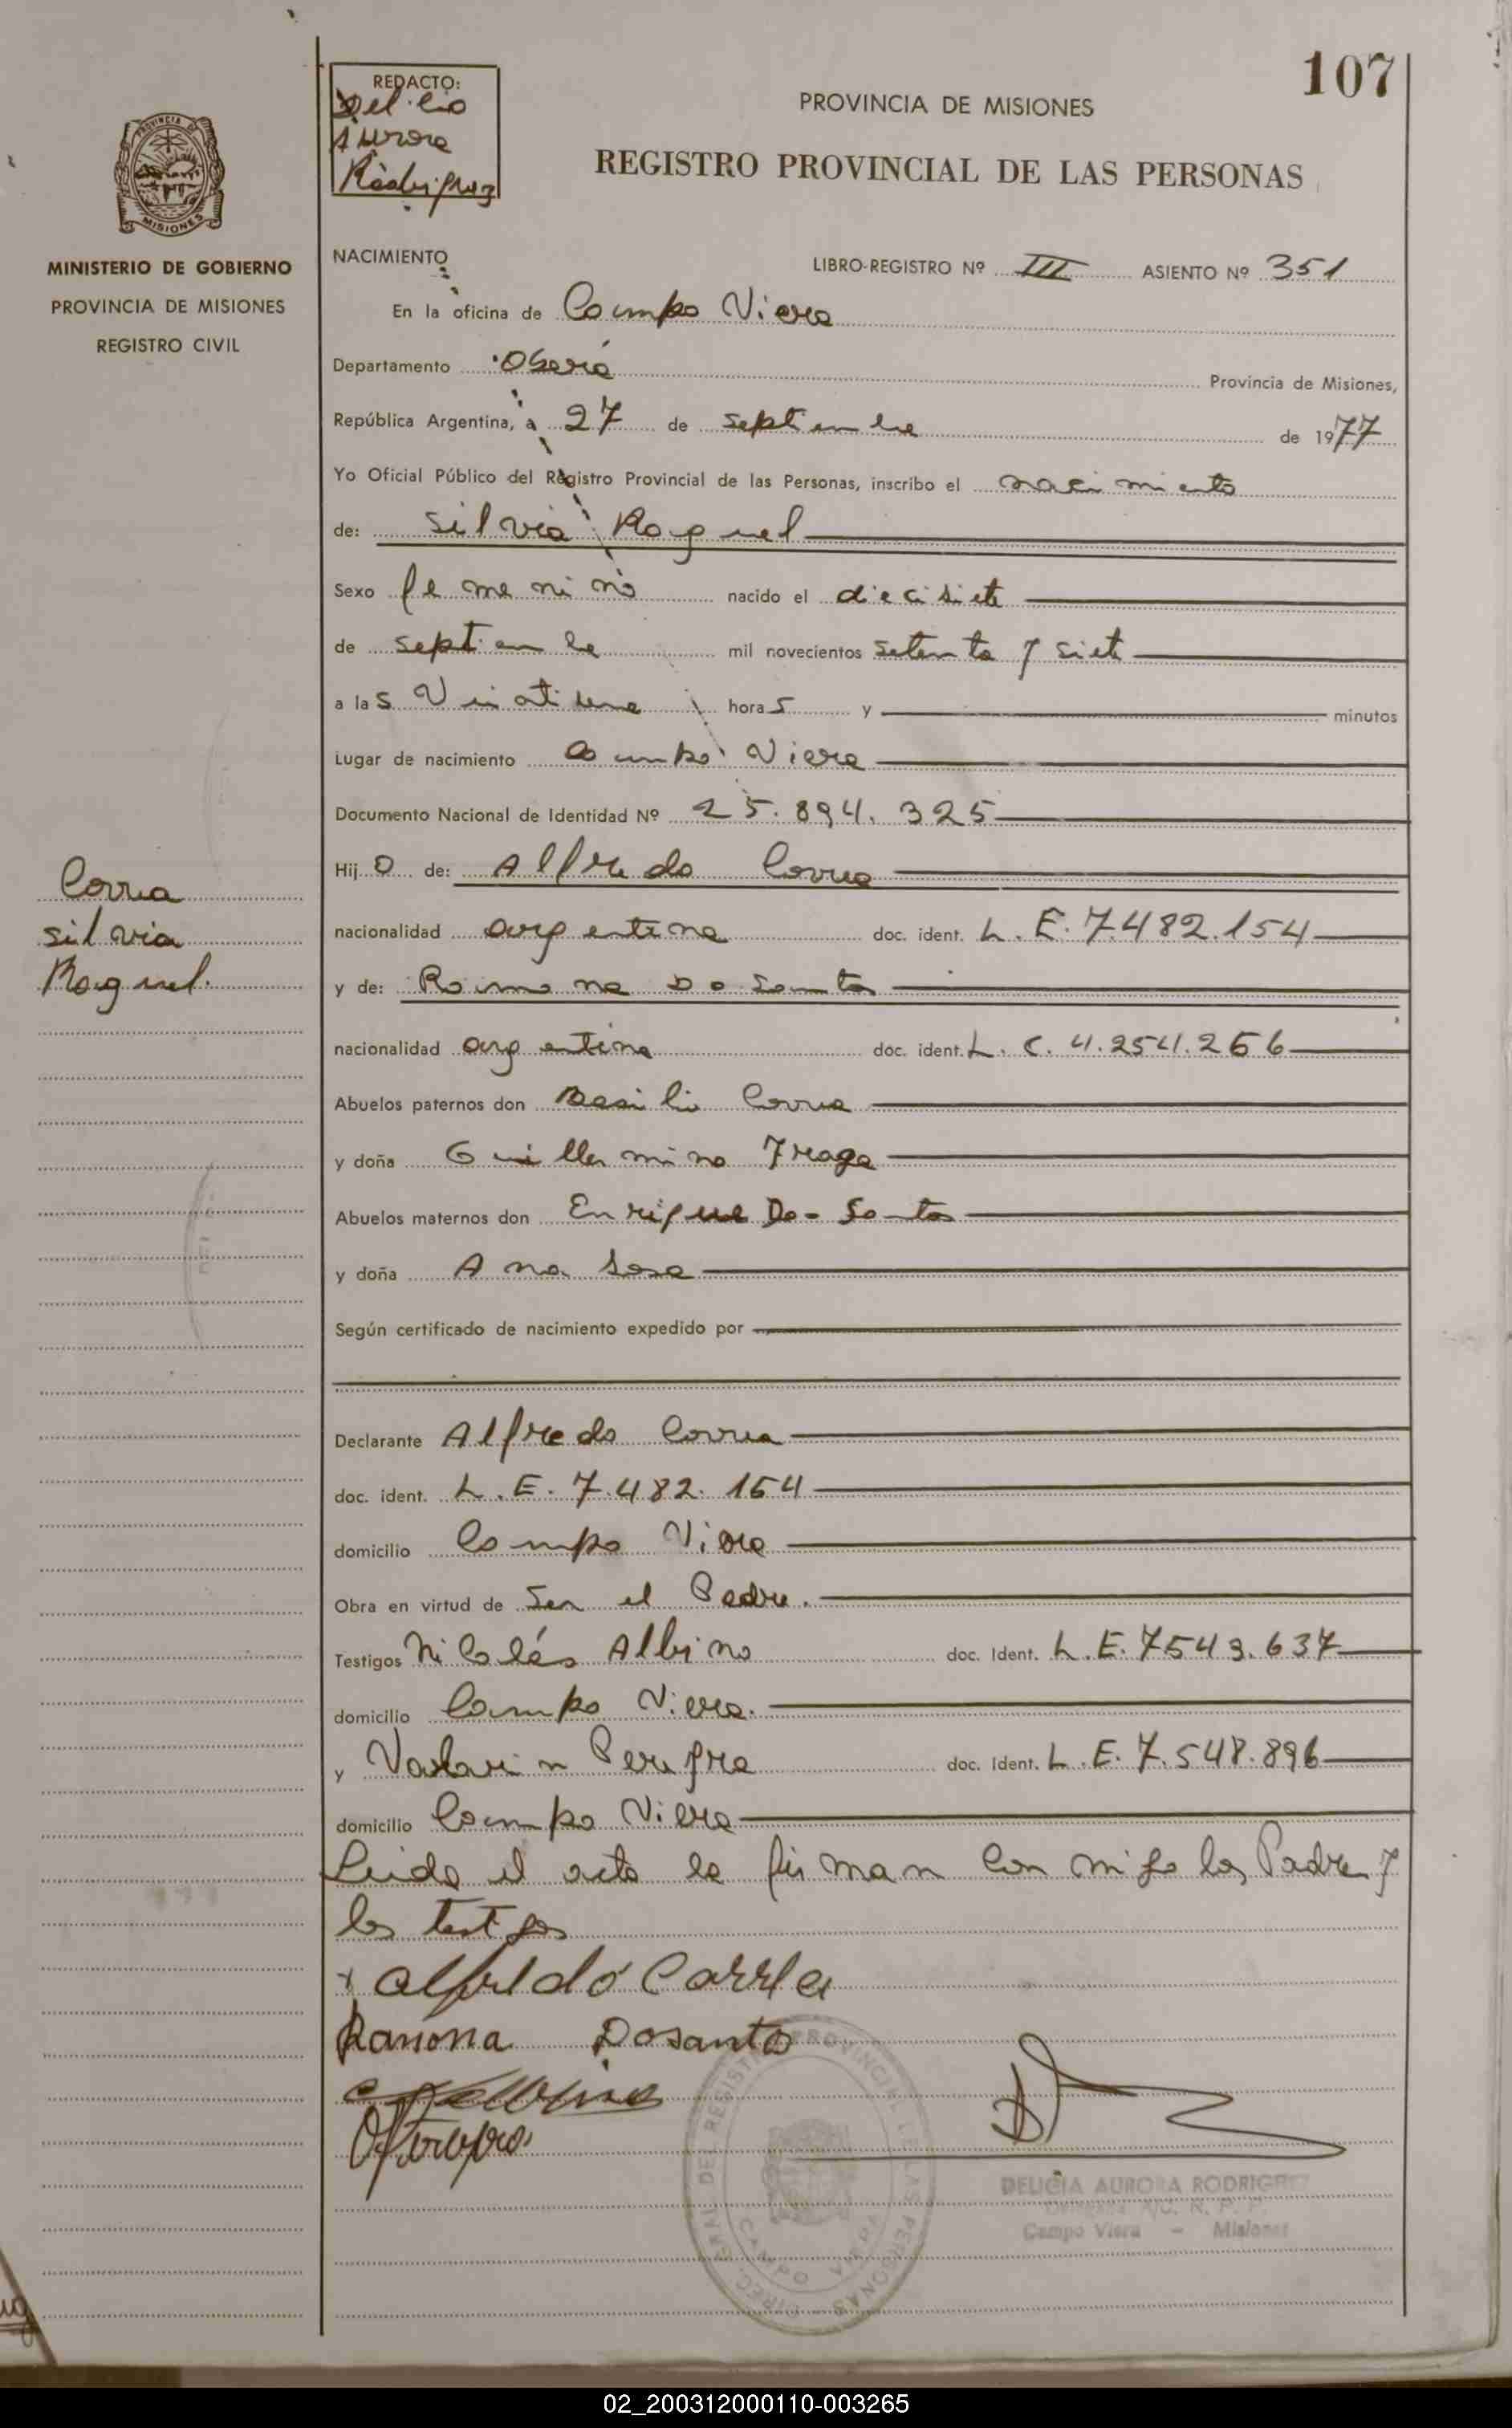 107
REDACTO:
Delicia
Aurora
Rodriguez
PROVINCIA DE MISIONES
REGISTRO PROVINCIAL DE LAS PERSONAS
PROVINCIA DE
MISIONES
MINISTERIO DE GOBIERNO
PROVINCIA DE MISIONES
REGISTRO CIVIL
NACIMIENTO
LIBRO-REGISTRO Nº III ASIENTO Nº 351
En la oficina de Campo Viera
Departamento Oberá Provincia de Misiones,
República Argentina, a 27 de septiembre de 1977
Yo Oficial Público del Registro Provincial de las Personas, inscribo el nacimiento
de: Silvia Raquel
Sexo femenino nacido el diecisiete
de septiembre mil novecientos setenta y siete
a las Veintiuna horas y minutos
Lugar de nacimiento Campo Viera
Documento Nacional de Identidad Nº 25.894.325
Hijo de: Alfredo Correa
Correa
Silvia
Raquel.
nacionalidad argentina doc. ident. L.E. 7.482.154
y de: Ramona Do Santos
nacionalidad argentina doc. ident. L.C. 4.254.266
Abuelos paternos don Basilio Correa
y doña Guillermina Fraga
Abuelos maternos don Enrique Do Santos
y doña Ana Sosa
Según certificado de nacimiento expedido por
Declarante Alfredo Correa
doc. ident. L.E. 7.482.154
domicilio Campo Viera
Obra en virtud de Ser el Padre.
Testigos Nicolás Albino doc. Ident. L.E. 7543.637
domicilio Campo Viera.
y Pereyra doc. Ident. L.E. 7.548.896
domicilio Campo Viera
Leida el acta la firman con migo los Padres y
los testigos
x alfredo Correa
Ramona Dosanto
DELICIA AURORA RODRIGUEZ
Campo Viera - Misiones
DIREC. GRAL DEL REGISTRO PROVINCIAL DE LAS PERSONAS
CAMPO VIERA
02_200312000110-003265